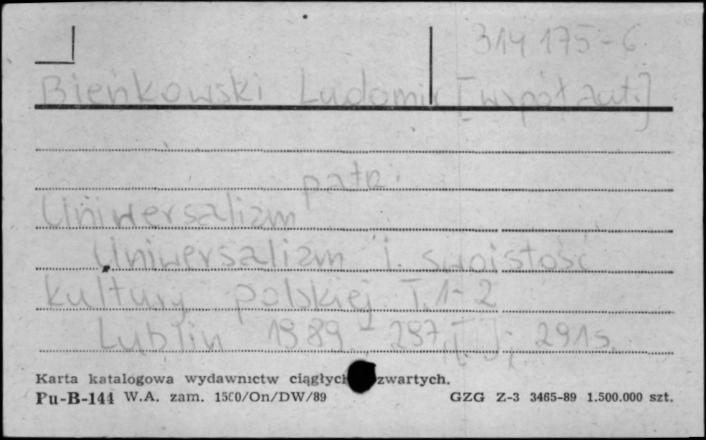 314 175-6
Bieńkowski Ludomir [współaut.]
patrz:
Uniwersalizm
Uniwersalizm i swoistość
kultury polskiej T.1-2
Lublin 1989 - 297, [1]; 291s.
Karta katalogowa wydawnictw ciągłych zwartych.
Pu-B-144 W.A. zam. 1500/On/DW/89 GZG Z-3 3465-89 1.500.000 szt.